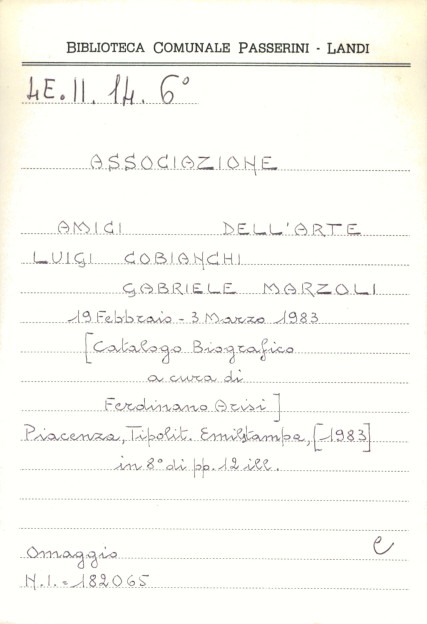 BIBLIOTECA COMUNALE PASSERINI - LANDI
4E.II.14.6°
ASSOCIAZIONE
AMICI DELL'ARTE
LUIGI COBIANCHI
GABRIELE MARZOLI
19 Febbraio - 3 Marzo 1983
[Catalogo Biografico
a cura di
Ferdinano Arisi]
Piacenza, Tipolit. Emilstampa, [1983]
in 8° di pp. 12 ill.
Omaggio e
N.I. = 182065